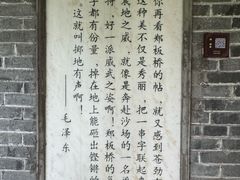 你再看郑板桥的帖，就又感到苍劲
这种美不仅是秀丽，把一串字联起
震地之威，就像是奔赴沙场的一名
将，好一派威武之姿啊！郑板桥的
字都有份量，掉在地上能砸出铿锵的
这就叫掷地有声啊！
——毛泽东